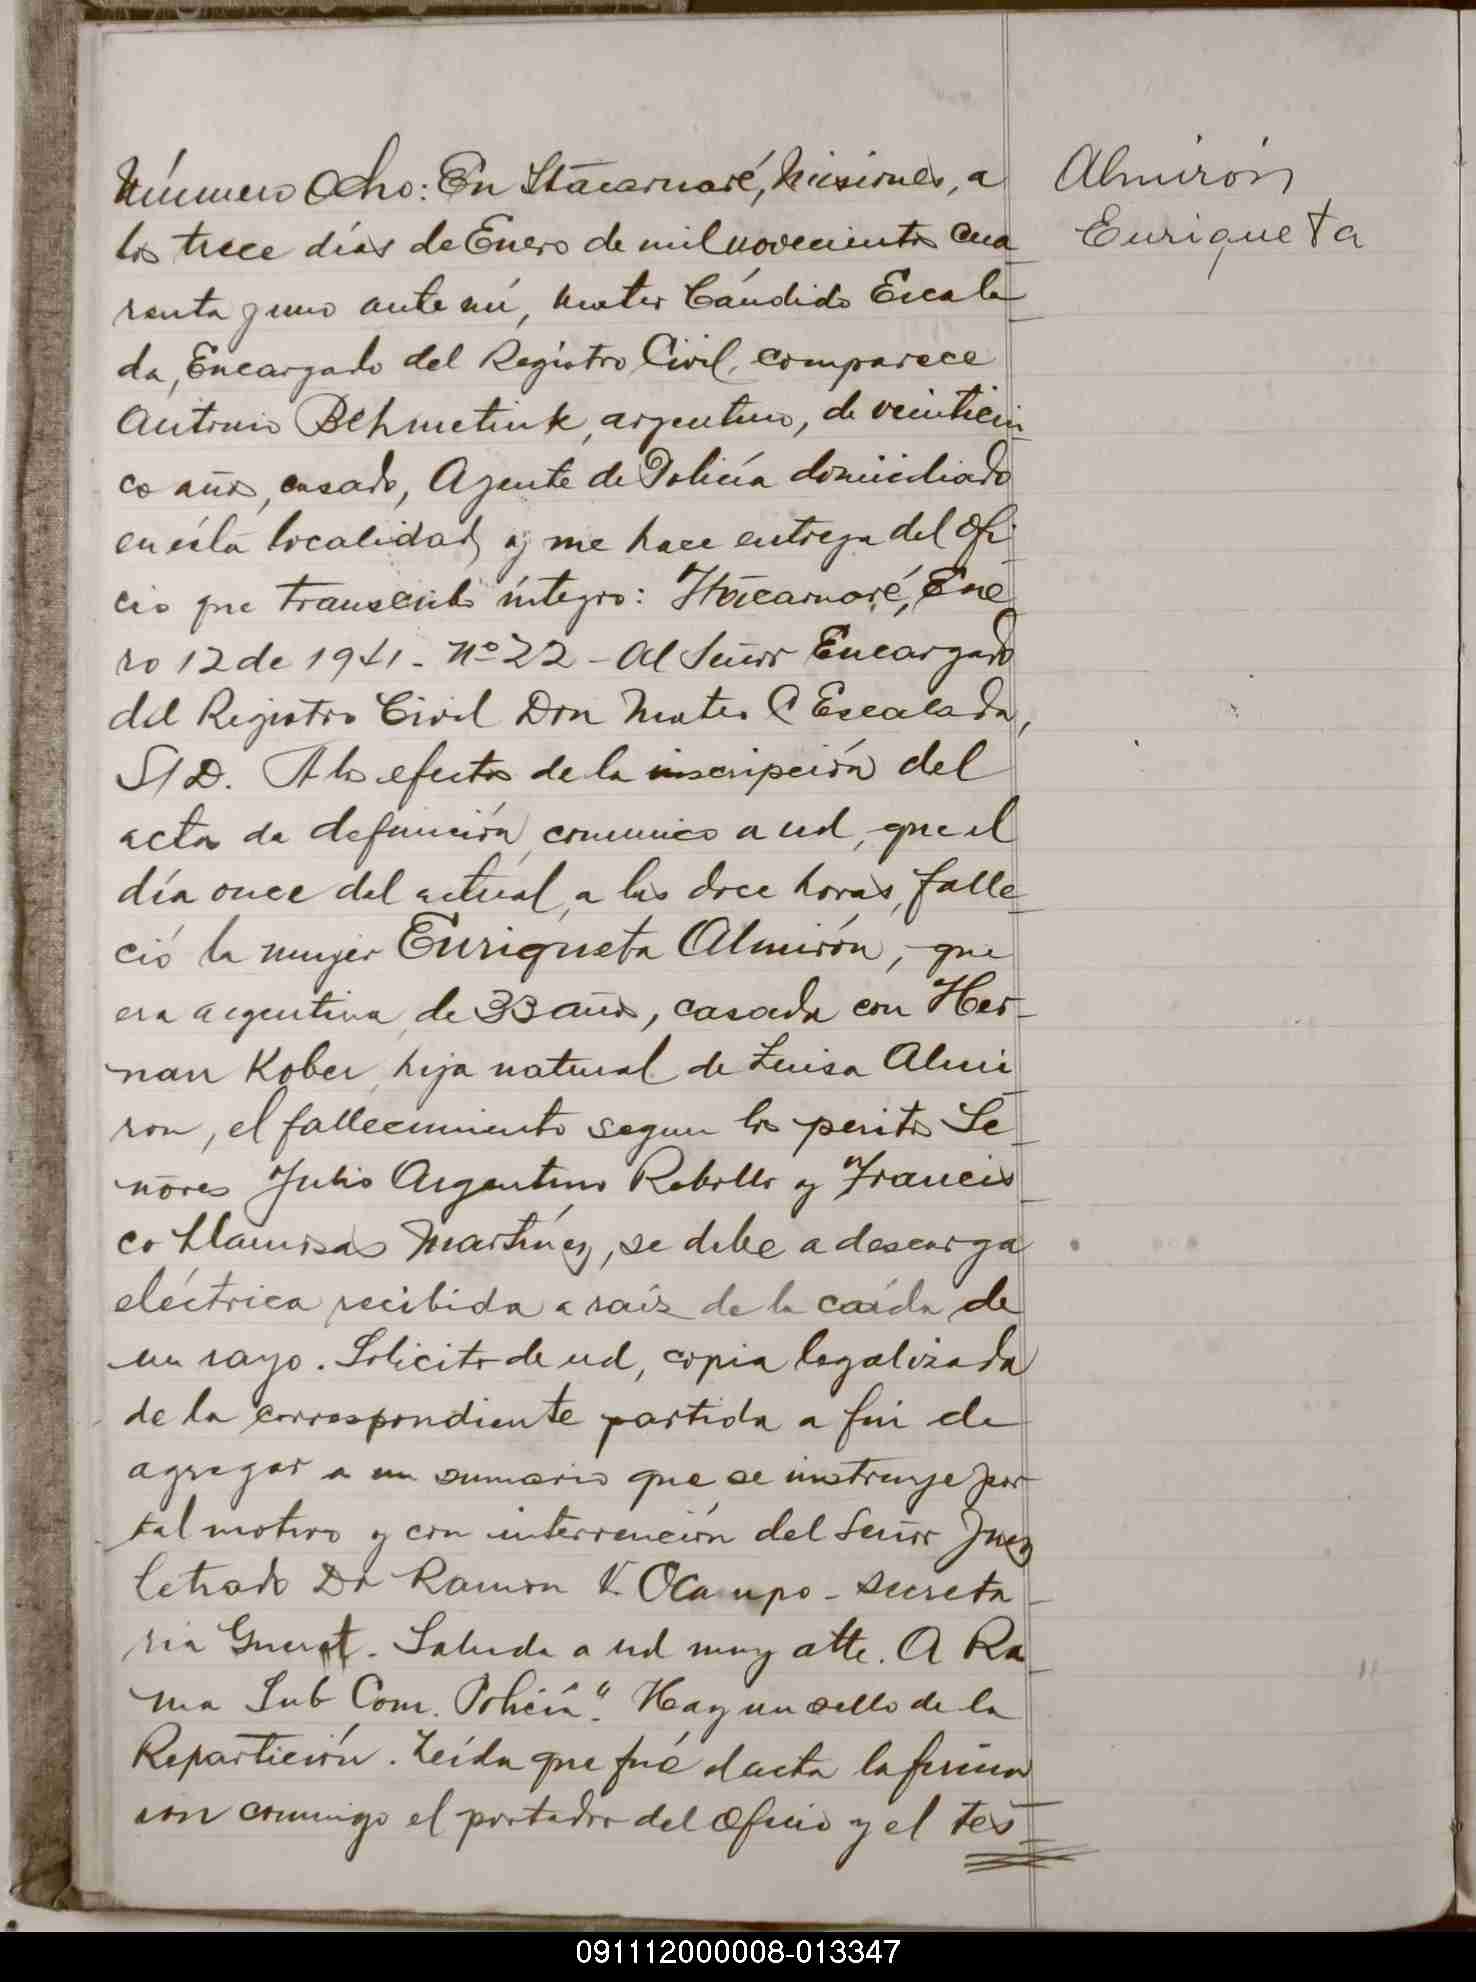 Número Ocho: En Itacaruaré, Misiones, a
los trece días de Enero de mil novecientos cua
renta y uno ante mí, Mateo Cándido Escala
da, Encargado del Registro Civil, comparece
Antonio argentino, de veinticin
co años, casado, Agente de Policía domiciliado
en ésta localidad y me hace entrega del Ofi
cio que transcribo íntegro: Itacaruaré, Ene
ro 12 de 1941 - Nº 22 - Al Señor Encargado
del Registro Civil Don Mateo C Escalada,
S/D. A los efectos de la inscripción del
acta de defunción, comunico a ud, que el
día once del actual, a las doce horas, falle
ció la mujer Enriqueta Almirón, que
era argentina, de 33 años, casada con Her-
nan Kober, hija natural de Luisa Almi
ron, el fallecimiento segun los peritos Se
ñores Julio Argentino Rebollo y Francis
co Llamosas Martínez, se debe a descarga
eléctrica recibida a raíz de la caída de
un rayo. Solicito de ud, copia legalizada
de la correspondiente partida a fin de
agregar a un sumario que se instruye por
tal motivo y con intervención del Señor Juez
Letrado Dr Ramon V. Ocampo - Secreta
ria Saluda a ud muy atte. A Ra
ma Sub Com. Policía". Hay un sello de la
Repartición. Leída que fué el acta la firma
con conmigo el portador del Oficio y el tes
Almirón
Enriqueta
091112000008-013347